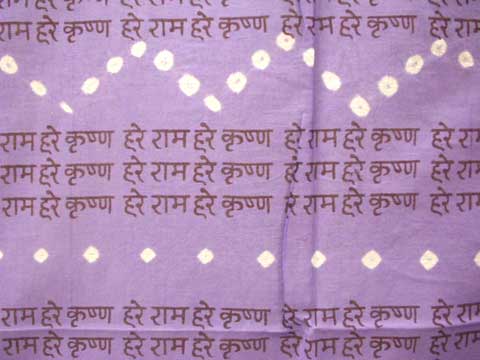 राम हरे कृष्ण हरे राम हरे कृष्ण हरे राम हरे कृष्ण हरे
राम हरे कृष्ण हरे राम हरे कृष्ण हरे राम हरे कृष्ण हरे
राम हरे कृष्ण हरे राम हरे कृष्ण हरे राम हरे कृष्ण हरे
राम हरे कृष्ण हरे राम हरे कृष्ण हरे राम हरे कृष्ण हरे
राम हरे कृष्ण हरे राम हरे कृष्ण हरे राम हरे कृष्ण हरे
राम हरे कृष्ण हरे राम हरे कृष्ण हरे राम हरे कृष्ण हरे